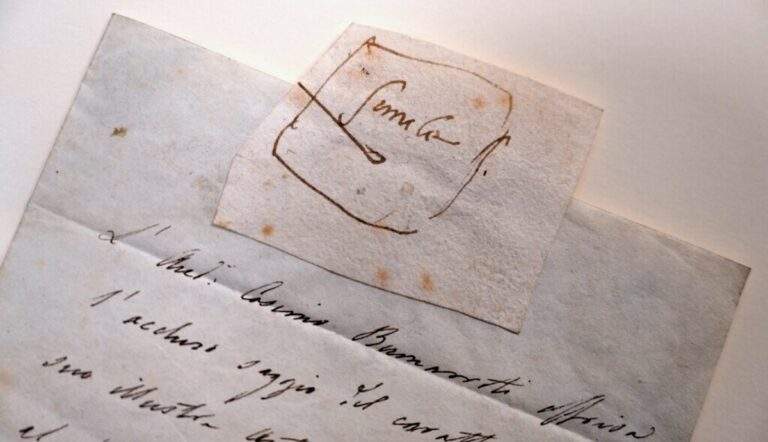 simile
L' Cosimo Buonarroti offriva
l' accluso saggio del caratt
suo illustre ant
al